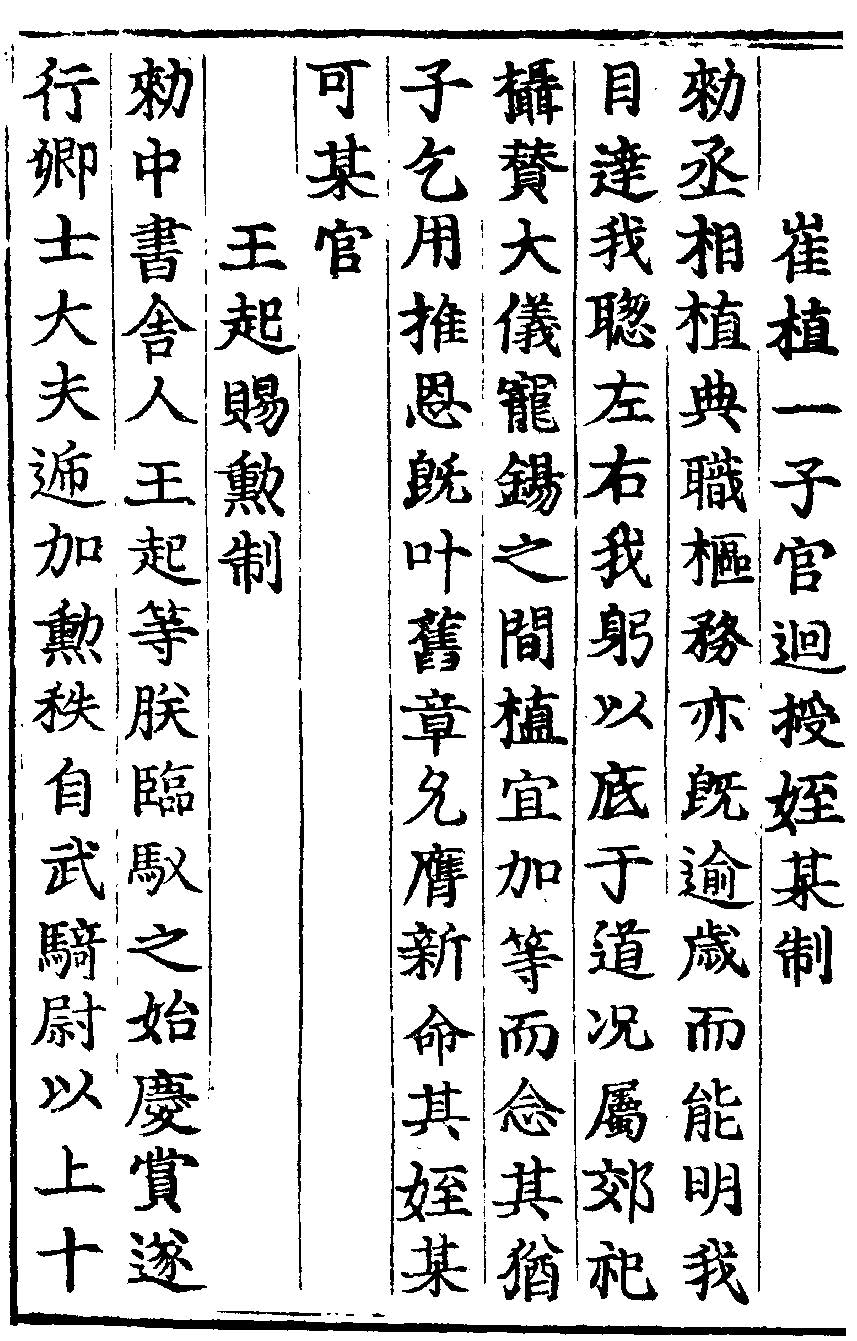 崔植一子官迴授姪某制
勑丞相植典職樞務亦旣逾歲而能明我
目達我聦左右我躬以底于道况屬郊祀
攝賛大儀寵錫之間植宜加等而念其猶
子乞用推恩旣叶舊章允膺新命其姪某
可某官
王起賜勲制
勑中書舎人王起等朕臨馭之始慶賞遂
行卿士大夫遞加勲秩自武騎尉以上十